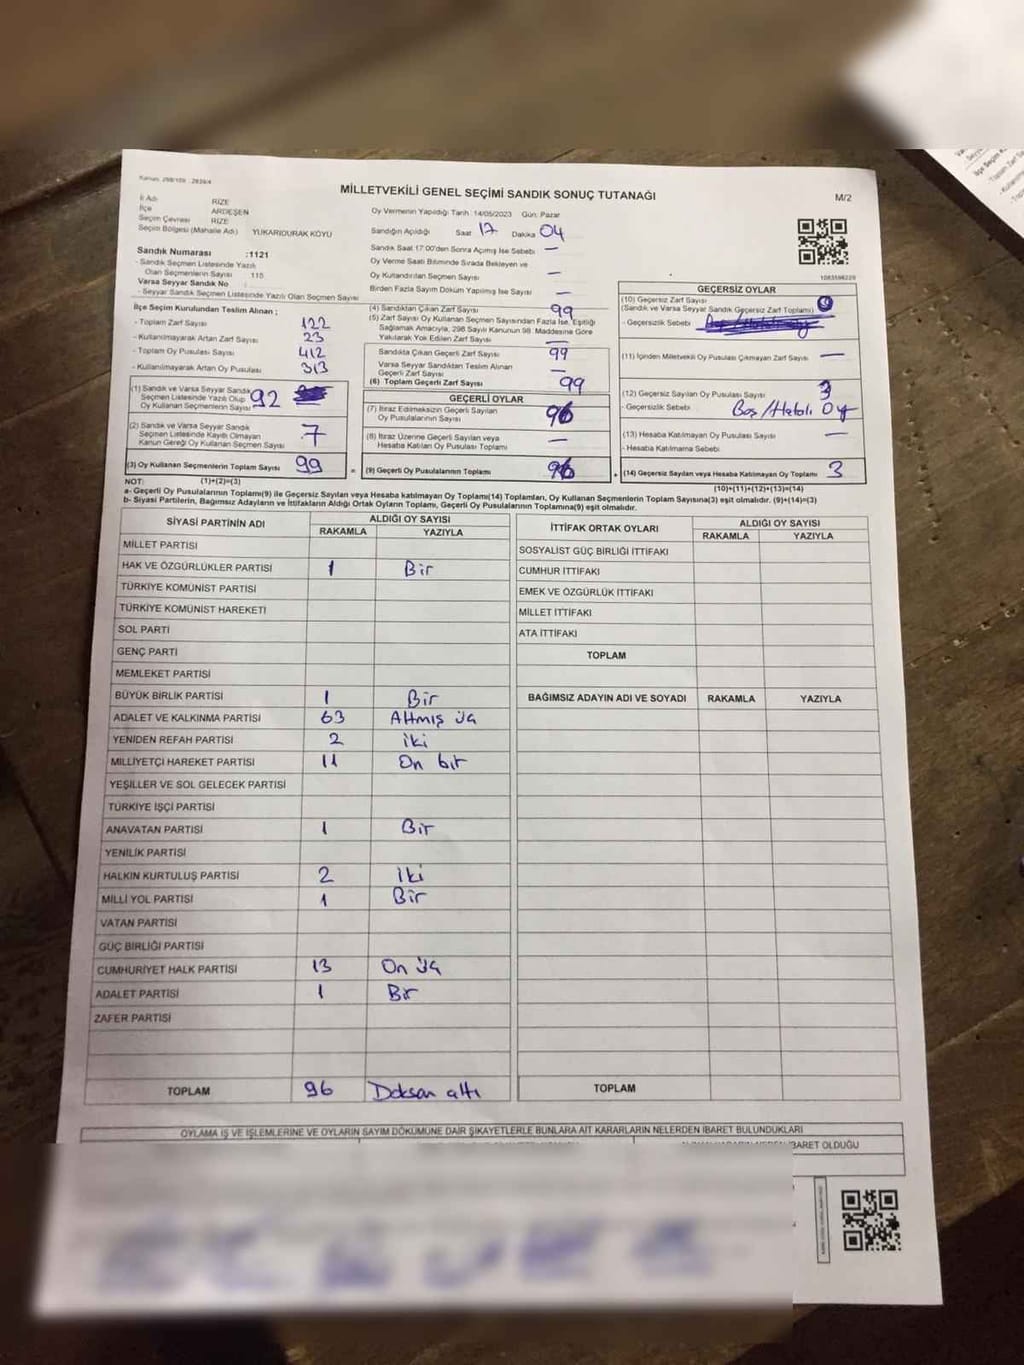 MİLLETVEKİLİ GENEL SEÇİMİ SANDIK SONUÇ TUTANAĞI
M/2
İl Adı RİZE
İlçe ARDEŞEN
Seçim Çevresi RİZE
Seçim Bölgesi (Mahalle Adı) YUKARIDURAK KÖYÜ
Oy Vermenin Yapıldığı Tarih :14/05/2023 Gün: Pazar
Sandığın Açıldığı Saat 17 Dakika 04
Sandık Saat 17:00'den Sonra Açılmış İse Sebebi —
Oy Verme Saati Bitiminde Sırada Bekleyen ve
Oy Kullandırılan Seçmen Sayısı —
Birden Fazla Sayım Döküm Yapılmış İse Sayısı —
Sandık Numarası :1121
- Sandık Seçmen Listesinde Yazılı
Olan Seçmenlerin Sayısı 115
Varsa Seyyar Sandık No :
- Seyyar Sandık Seçmen Listesinde Yazılı Olan Seçmen Sayısı
İlçe Seçim Kurulundan Teslim Alınan ;
- Toplam Zarf Sayısı 122
- Kullanılmayarak Artan Zarf Sayısı 23
- Toplam Oy Pusulası Sayısı 412
- Kullanılmayarak Artan Oy Pusulası 313
(1) Sandık ve Varsa Seyyar Sandık
Seçmen Listesinde Yazılı Olup
Oy Kullanan Seçmenlerin Sayısı 92
(2) Sandık ve Varsa Seyyar Sandık
Seçmen Listesinde Kayıtlı Olmayan
Kanun Gereği Oy Kullanan Seçmen Sayısı 7
(3) Oy Kullanan Seçmenlerin Toplam Sayısı 99
(1)+(2)=(3)
(4) Sandıktan Çıkan Zarf Sayısı 99
(5) Zarf Sayısı Oy Kullanan Seçmen Sayısından Fazla İse, Eşitliği
Sağlamak Amacıyla, 298 Sayılı Kanunun 98. Maddesine Göre
Yakılarak Yok Edilen Zarf Sayısı —
Sandıkta Çıkan Geçerli Zarf Sayısı 99
Varsa Seyyar Sandıktan Teslim Alınan
Geçerli Zarf Sayısı —
(6) Toplam Geçerli Zarf Sayısı 99
GEÇERLİ OYLAR
(7) İtiraz Edilmeksizin Geçerli Sayılan
Oy Pusulalarının Sayısı 96
(8) İtiraz Üzerine Geçerli Sayılan veya
Hesaba Katılan Oy Pusulası Toplamı —
= (9) Geçerli Oy Pusulalarının Toplamı 96
1083598220
GEÇERSİZ OYLAR
(10) Geçersiz Zarf Sayısı
(Sandık ve Varsa Seyyar Sandık Geçersiz Zarf Toplamı)
- Geçersizlik Sebebi
(11) İçinden Milletvekili Oy Pusulası Çıkmayan Zarf Sayısı —
(12) Geçersiz Sayılan Oy Pusulası Sayısı 3
- Geçersizlik Sebebi Boş/Hatalı Oy
(13) Hesaba Katılmayan Oy Pusulası Sayısı —
- Hesaba Katılmama Sebebi
+ (14) Geçersiz Sayılan veya Hesaba Katılmayan Oy Toplamı 3
(10)+(11)+(12)+(13)=(14)
NOT:
a- Geçerli Oy Pusulalarının Toplamı(9) ile Geçersiz Sayılan veya Hesaba katılmayan Oy Toplamı(14) Toplamları, Oy Kullanan Seçmenlerin Toplam Sayısına(3) eşit olmalıdır. (9)+(14)=(3)
b- Siyasi Partilerin, Bağımsız Adayların ve İttifakların Aldığı Ortak Oyların Toplamı, Geçerli Oy Pusulalarının Toplamına(9) eşit olmalıdır.
SİYASİ PARTİNİN ADI ALDIĞI OY SAYISI
RAKAMLA YAZIYLA
MİLLET PARTİSİ
HAK VE ÖZGÜRLÜKLER PARTİSİ 1 Bir
TÜRKİYE KOMÜNİST PARTİSİ
TÜRKİYE KOMÜNİST HAREKETİ
SOL PARTİ
GENÇ PARTİ
MEMLEKET PARTİSİ
BÜYÜK BİRLİK PARTİSİ 1 Bir
ADALET VE KALKINMA PARTİSİ 63 Altmış üç
YENİDEN REFAH PARTİSİ 2 iki
MİLLİYETÇİ HAREKET PARTİSİ 11 On bir
YEŞİLLER VE SOL GELECEK PARTİSİ
TÜRKİYE İŞÇİ PARTİSİ
ANAVATAN PARTİSİ 1 Bir
YENİLİK PARTİSİ
HALKIN KURTULUŞ PARTİSİ 2 iki
MİLLİ YOL PARTİSİ 1 Bir
VATAN PARTİSİ
GÜÇ BİRLİĞİ PARTİSİ
CUMHURİYET HALK PARTİSİ 13 On üç
ADALET PARTİSİ 1 Bir
ZAFER PARTİSİ
TOPLAM 96 Doksan altı
İTTİFAK ORTAK OYLARI ALDIĞI OY SAYISI
RAKAMLA YAZIYLA
SOSYALİST GÜÇ BİRLİĞİ İTTİFAKI
CUMHUR İTTİFAKI
EMEK VE ÖZGÜRLÜK İTTİFAKI
MİLLET İTTİFAKI
ATA İTTİFAKI
TOPLAM
BAĞIMSIZ ADAYIN ADI VE SOYADI RAKAMLA YAZIYLA
TOPLAM
OYLAMA İŞ VE İŞLEMLERİNE VE OYLARIN SAYIM DÖKÜMÜNE DAİR ŞİKAYETLERLE BUNLARA AİT KARARLARIN NELERDEN İBARET BULUNDUKLARI
İBARET OLDUĞU